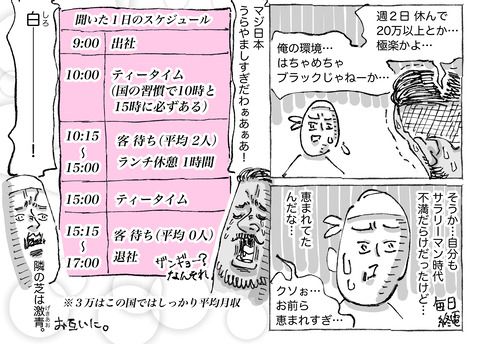 週２日 休んで
20万以上とか…
極楽かよ…
俺の環境…
はちゃめちゃ
ブラックじゃねーか…
そうか…自分も
サラリーマン時代
不満だらけだったけど…
毎日
恵まれてた
んだな…
クソぉ…
お前ら
恵まれすぎ…
マジ日本
うらやましすぎだわぁあぁあ！
聞いた１日のスケジュール
9:00 出社
10:00 ティータイム
（国の習慣で10時と
15時に必ずある）
10:15 客 待ち（平均 2人）
〜
15:00 ランチ休憩 1時間
15:00 ティータイム
15:15 客 待ち（平均 0人）
〜
17:00 退社
ザンギョー？
なんそれ
※３万はこの国ではしっかり平均月収
しろ
白ーーー！
げきあお
隣の芝は激青。
お互いに。